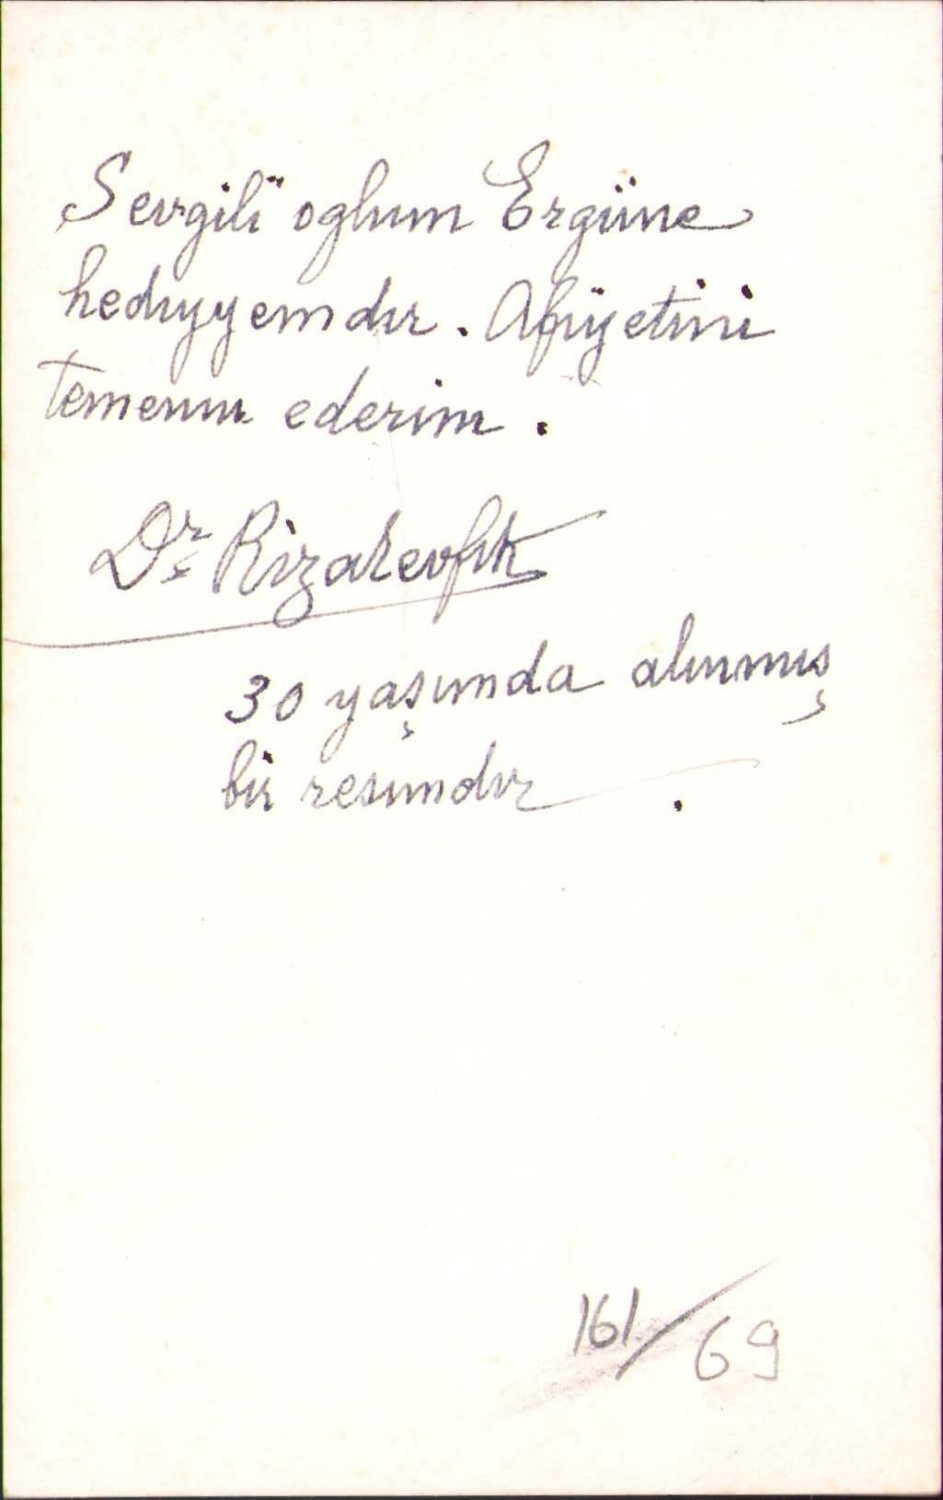 Sevgili oglum Ergüne
hediyyemdir. Afiyetini
temenni ederim.
Dr Riza Tevfik
30 yaşımda alınmış
bir resimdir.
161/69